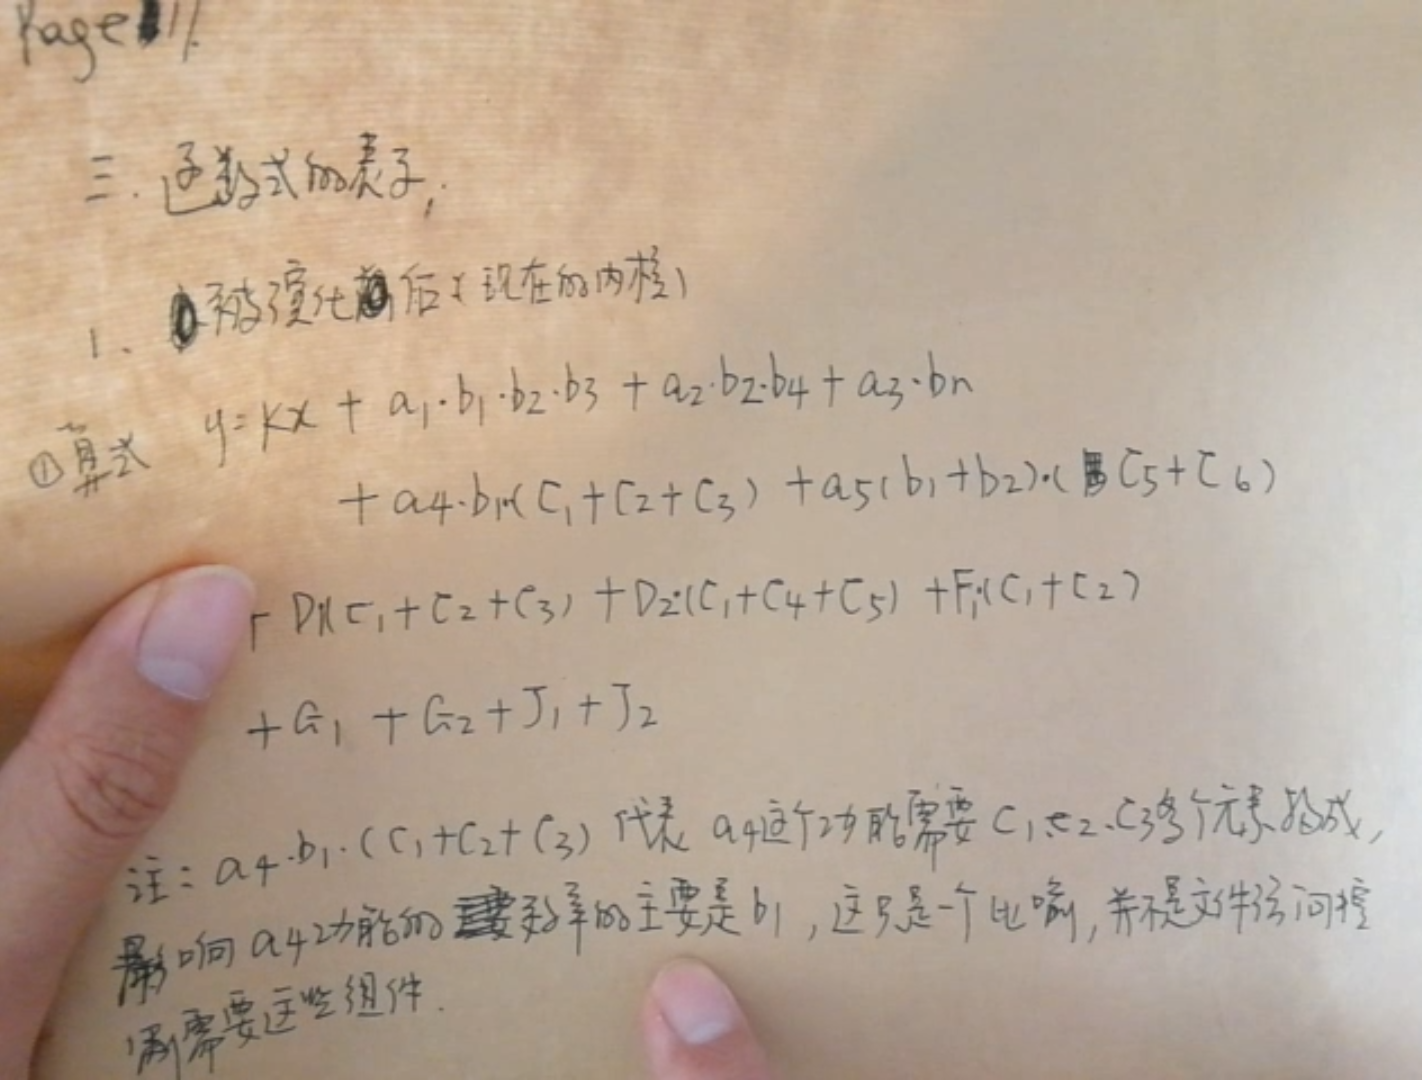 Page 11.
三. 函数式的表示;
1. 被演化后(现在的内核)
①算式 y=kx + a₁·b₁·b₂·b₃ + a₂·b₂·b₄ + a₃·bn
+ a₄·b₁·(C₁+C₂+C₃) +a₅(b₁+b₂)·(C₅+C₆)
+ D₁(C₁+C₂+C₃) +D₂·(C₁+C₄+C₅) +F₁·(C₁+C₂)
+G₁ +G₂+J₁+J₂
注: a₄·b₁·(C₁+C₂+C₃) 代表 a₄这个功能需要C₁、C₂、C₃多个元素构成,
影响a₄功能的效率的主要是b₁,这只是一个比喻,并不是文件访问控
制需要这些组件.